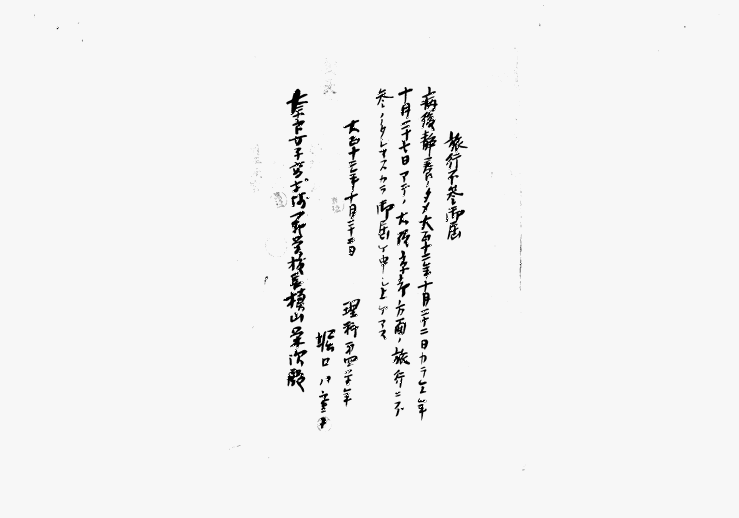 旅行不参御届
病後静養ノタメ大正十二年十月二十二日カラ仝年
十月二十七日マデノ大阪京都方面ノ旅行ニ不
参ノタレマスカラ御届ケ申シ上ゲマス
大正十二年十月二十日
理科第四学年
堀口
奈良女子高等師範学校長槇山栄次殿